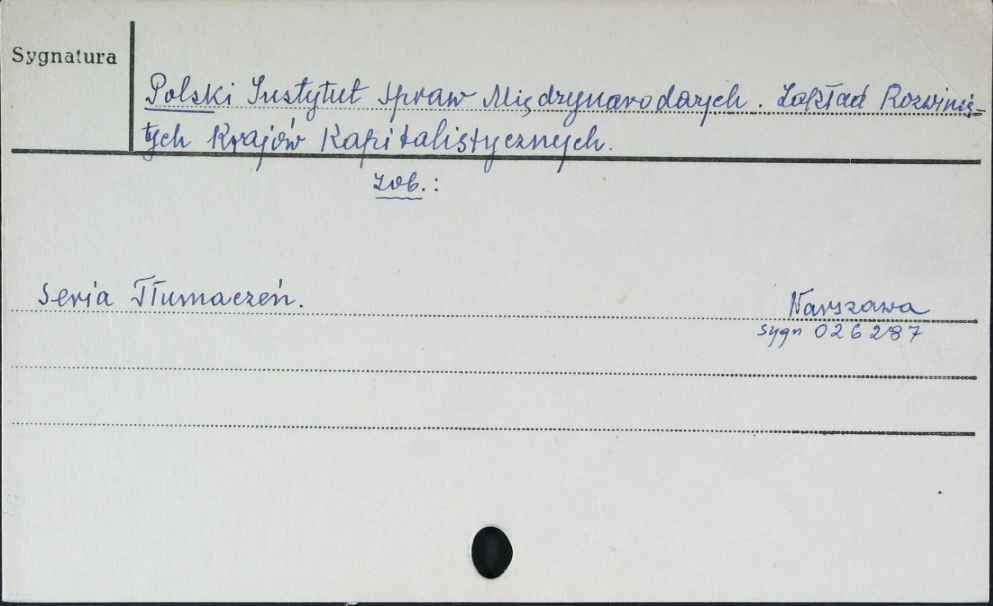 Sygnatura
Polski Instytut Spraw Międzynarodowych. Zakład Rozwinię=
tych Krajów Kapitalistycznych.
zob.:
Seria Tłumaczeń.
Warszawa
sygn 026287